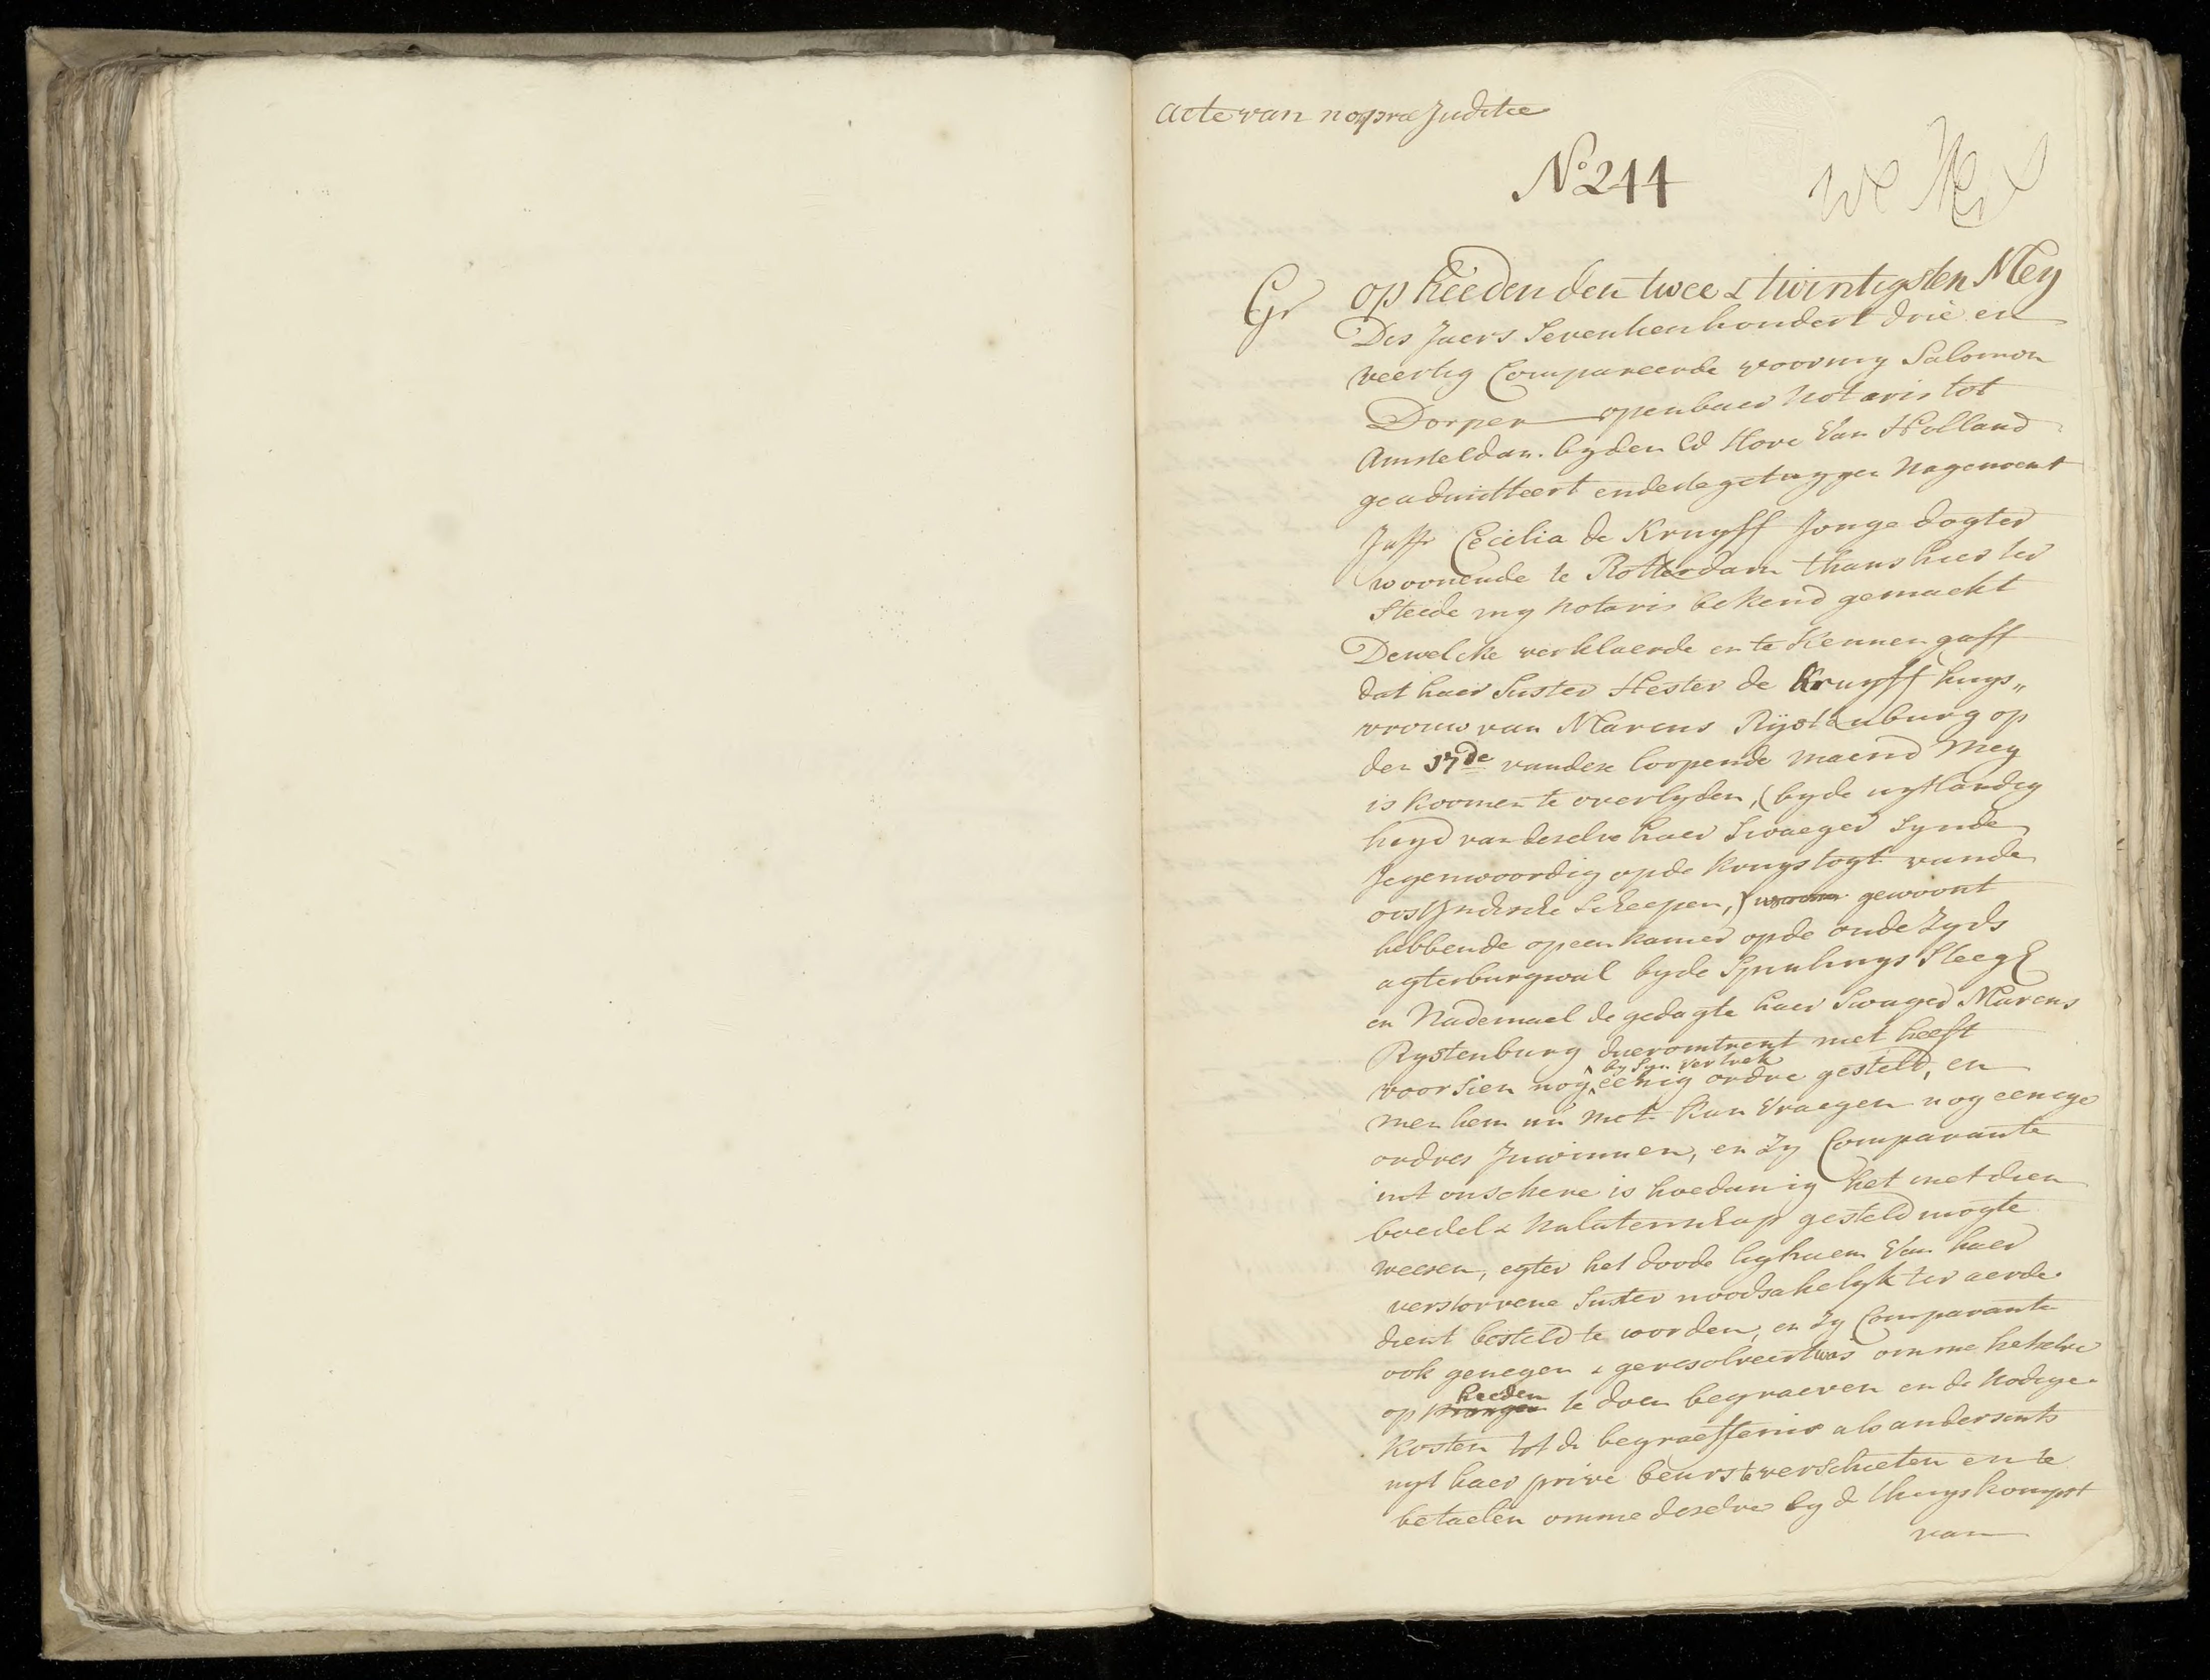 acte van nonpræ Juditie
No. 244
Gr
op heeden den twee & twintigsten Mey
Des Jaers Seventienhondert drie en
veertig Compareerde voor my Salomon
Dorper openbaer Notaris tot
Amsteldam. by den Ed Hove Van Holland
geadmitteert ende de getuygen Nagenoemt
Juffr Cecilia de Kruyff Jonge dogter
woonende te Rotterdam thans hier ter
Steede my Notaris bekend gemackt
Dewelcke verklaerde en te Kennen gaff
dat haer Suster Hester de Kruyff huys„
vrouw van Marcus Rijstenburg op
den 17de van dese loopende maend Mey
is koomen te overlyden, (by de uytlandig
heyd van deselve haer Swaeger Synde
Jegenwoordig op de kruystogt van de
oostJndische Scheepen,) gewoont
hebbende op een kamer op de oude Zyds
agterburgwal by de Spinhuys Steeg
en Nademael de gedagte haer Swager Marcus
Rystenburg daeromtrent niet heeft
by Syn vertrek
voorsien nog eenig ordre gesteld, en
men hem nu niet kan Vraegen nog eenige
ordres Jnwinnen, en Zy Comparante
int onsekere is hoedanig het met dien
boedel & Nalatenschap gesteld mogte
weesen, egter het doode lighaem Van haer
verstorvene Suster noodsakelyk ter aerde
dient besteld te worden, en Zy Comparante
ook genegen & geresolveert was omme hetselve
heeden
op morgen te doen begraeven en de Nodige
kosten tot de begraeffenis als andersints
uyt haer prive beurs te verschieten en te
betaelen omme deselve by de thuyskompst
van